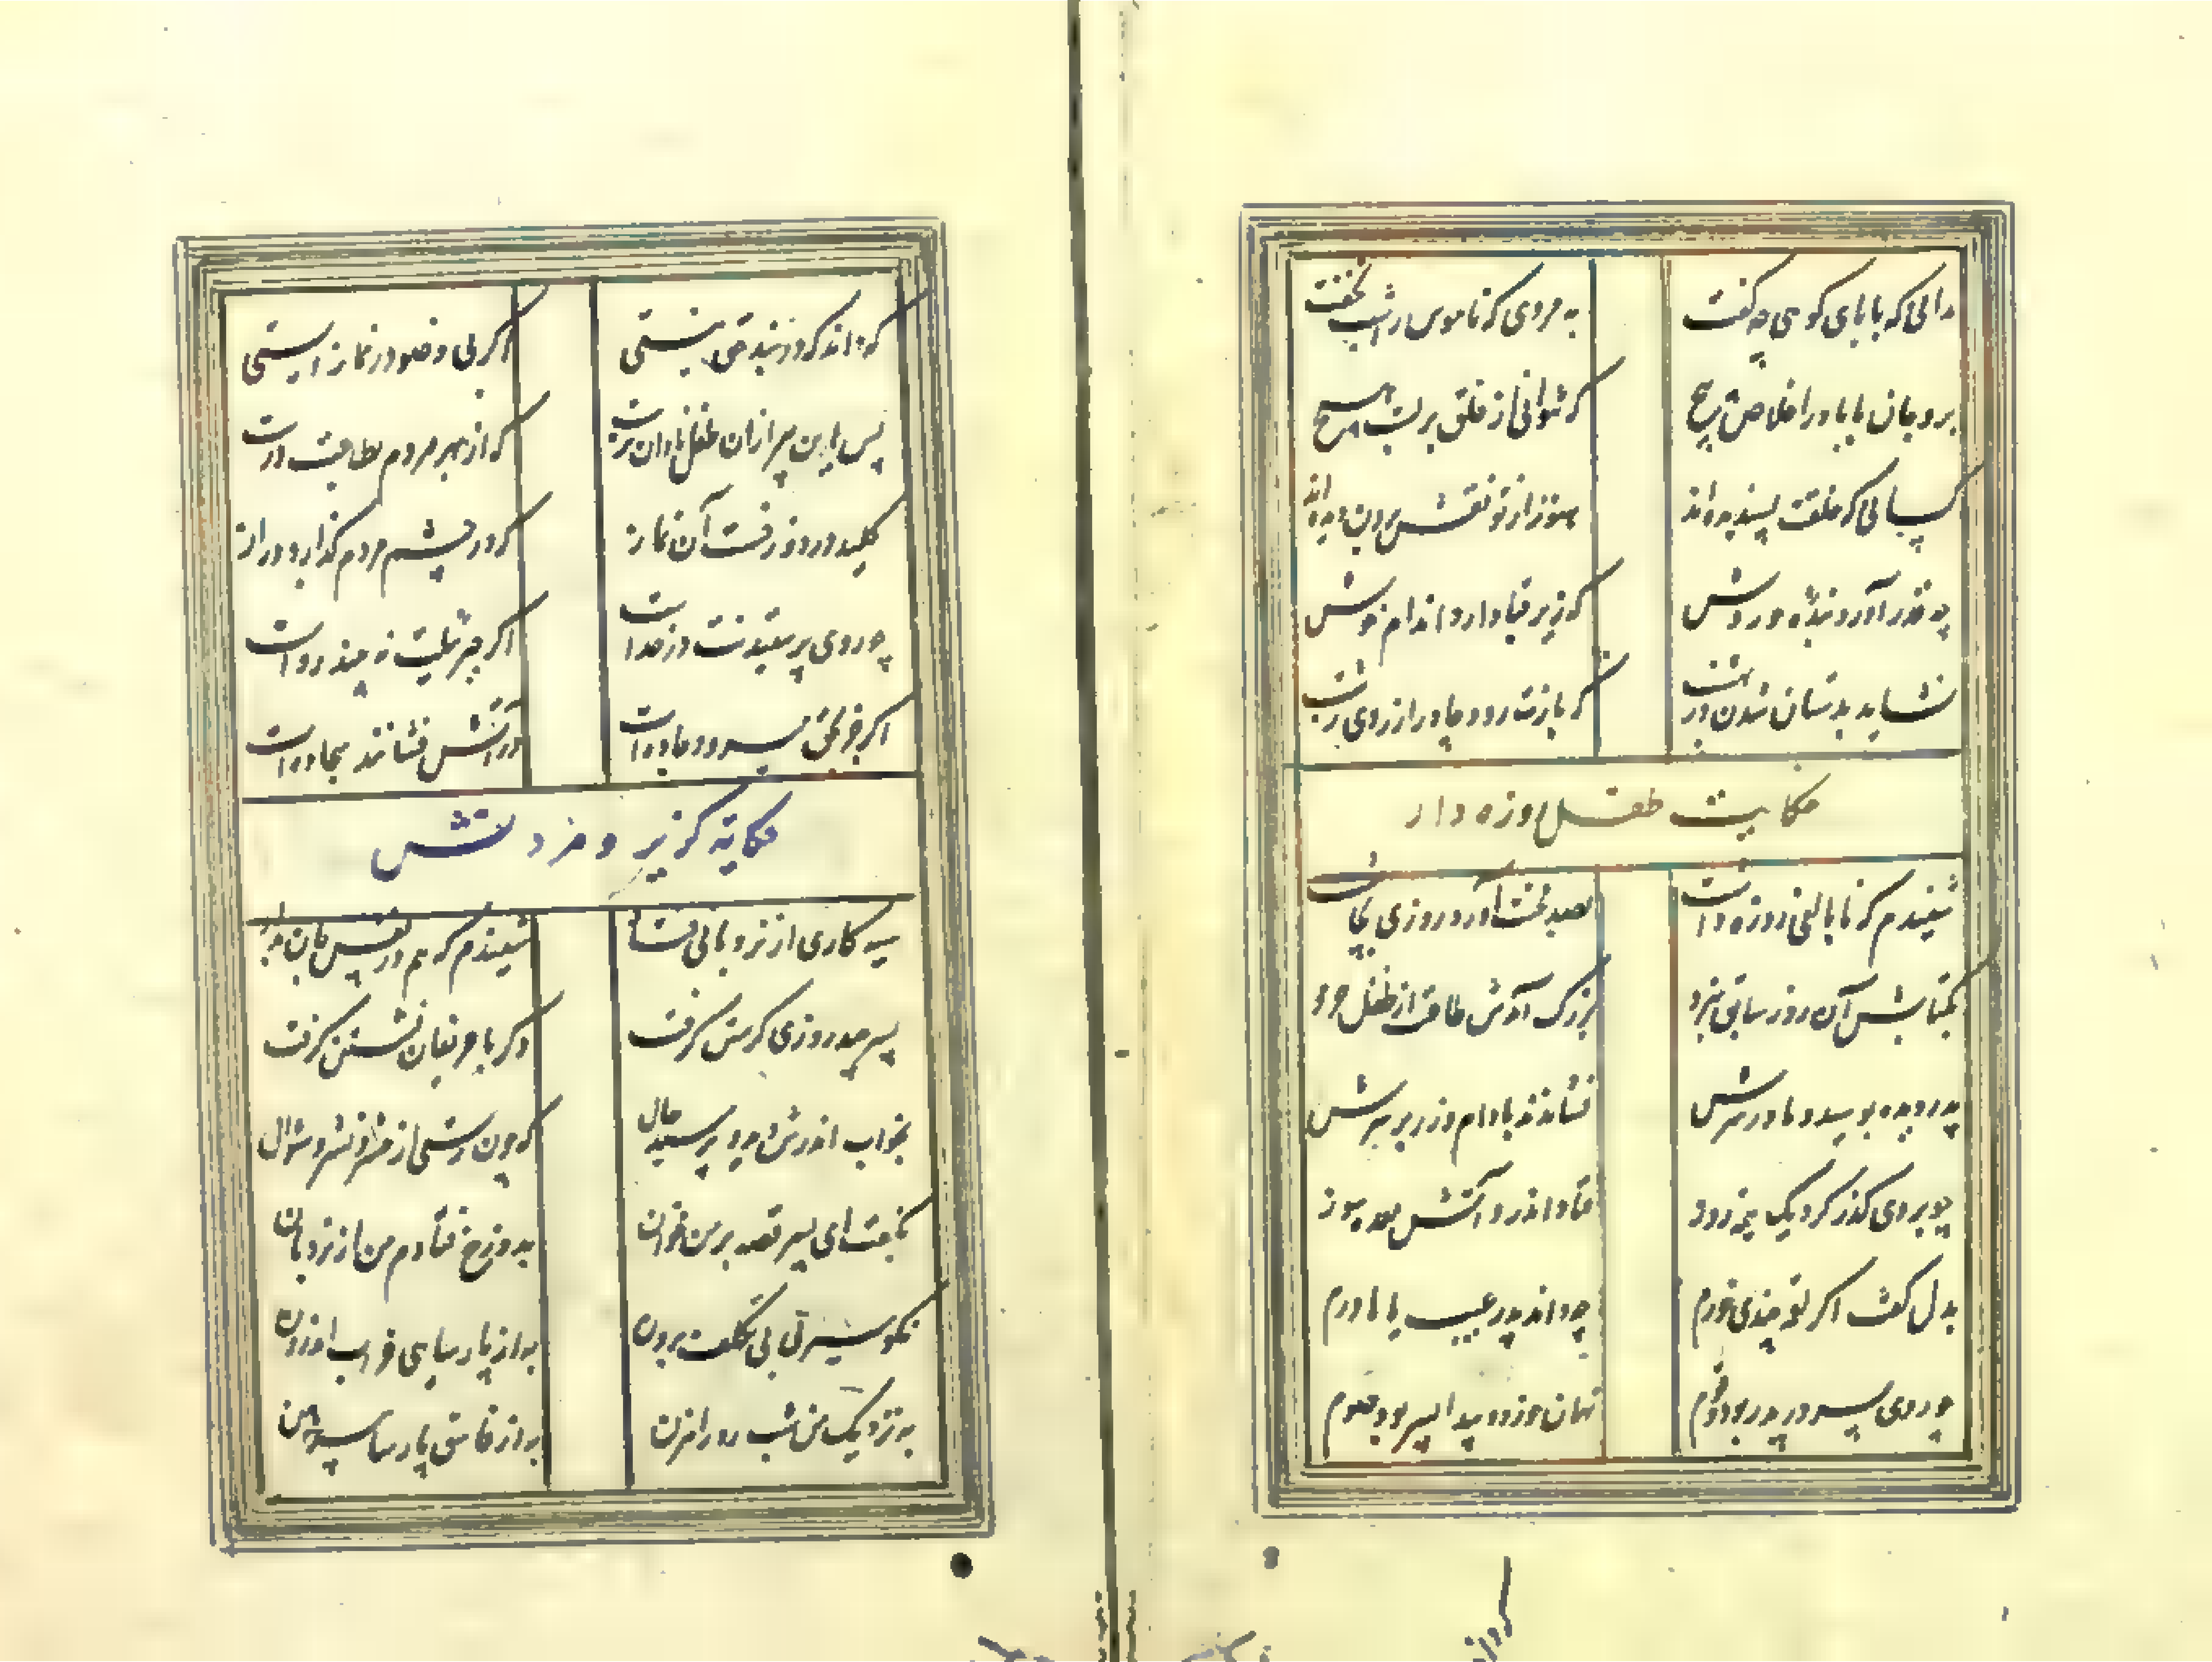 دانی که بابای کوهی چه گفت به مردی که ناموس را شب نخفت
برو جان بابا در اخلاص پیچ که نتوانی از خلق بربست هیچ
کسانی که فعلت پسندیده‌اند هنوز از تو نقش برون دیده‌اند
چه قدر آورد بنده حوروش که زیر قبا دارد اندام
نشاید بدستان شدن در بهشت که بازت رود چادر از روی زشت
حکایت طفل روزه دار
شنیدم که نابالغی روزه داشت بصد محنت آورد روزی بچاشت
بکتابش آن روز سابق نبرد بزرگ آمدش طاعت از طفل خرد
پدر دیده بوسید و مادر سرش فشاندند بادام و زر بر سرش
چو بر وی گذر کرد یک نیمه روز فتاد اندرو آتش معده سوز
بدل گفت اگر لقمه چندی خورم چه داند پدر عیب یا مادرم
چو روی پسر در پدر بود و قوم نهان خورد و پیدا بسر برد صوم
که داند که در بند حق نیستی اگر بی وضو در نماز ایستی
پس این پیر ازان طفل نادان‌ترست که از بهر مردم بطاعت درست
کلید در دوزخست آن نماز که در چشم مردم گذاری دراز
چو روی پرستیدنت در خداست اگر جبرئیلت نه بیند رواست
اگر جز بحق میرود جاده‌ات در آتش فشانند سجاده‌ات
حکایة گزیر و مرد نقش
سیه کاری از نردبانی فتاد شنیدم که هم در نفس جان بداد
پسر چند روزی گرستن گرفت دگر با حریفان نشستن گرفت
بخواب اندرش دید و پرسید حال که چون رستی از حشر و نشر و سؤال
بگفت ای پسر قصه بر من مخوان بدوزخ فتادم من از نردبان
نکو سیرتی بی تکلف برون به از پارسای خراب اندرون
به نزدیک من شب رو راهزن به از فاسق پارسا پیرهن